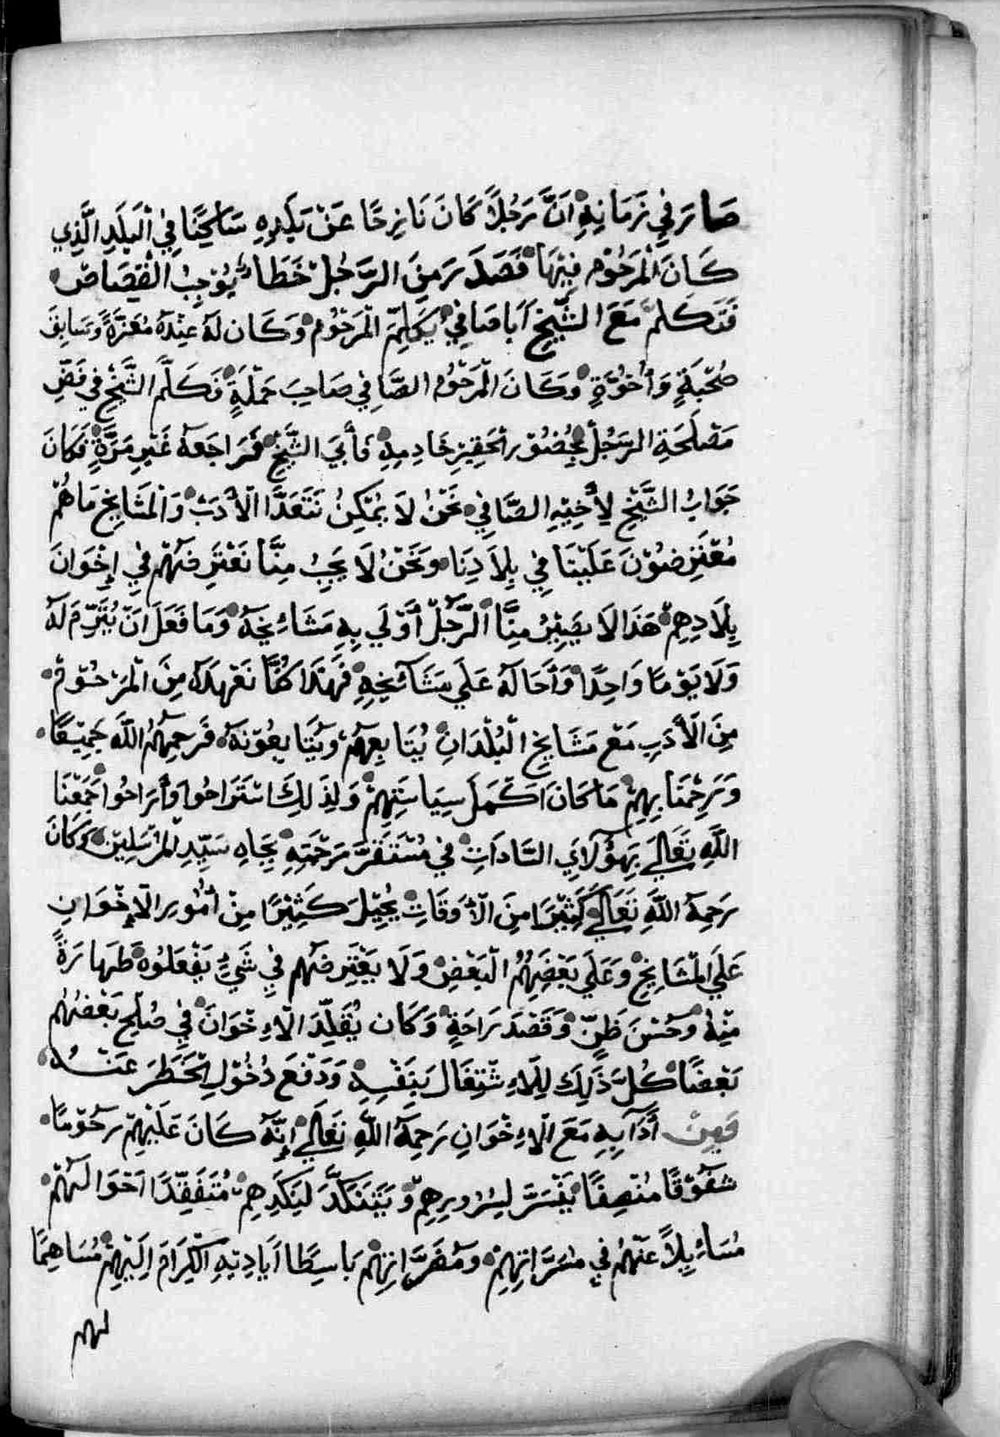 صَارَ فِي زَمَانِهِ اَنَّ رَجُلاً كَانَ نَازِحًا عَنْ بَلَدِهِ سَاكِنًا فِي الْبَلَدِ الَّذِي
كَانَ الْمَرْحُوم فِيْهَا فَصَدَرَ مِنَ الرَّجُلْ خَطَاءْ يُوْجِبُ الْقِصَاصْ
فَتَكَلَّمْ مَعَ الشَّيْخِ اَبَا صَافِيْ يُكَلِّمَ الْمَرْحُوْم وَكَان لَهُ عِنْدَهُ مُعَزَّةً وَسَابِقَ
صُحْبَةٍ وَاُخُوَّةٍ وَكَانَ الْمَرْحُوْم الصَّافِي صَاحِبَ حَمْلَةٍ فَكَلَّمَ الشَّيْخَ فِي
مَصْلَحَةِ الرَّجُلْ بِحُضُوْرِ الْحَقِيْرِ خَادِمِهِ فَأَبَي الشَّيْخْ فَرَاجَعَهُ غَيْرِ مَرَّةٍ فَكَانَ
جَوَابُ الشَّيْخِ لِأَخِيْهِ الصَّافِي نَحْنُ لَا يُمْكِنُ نَتَعَدَّا الْأَدَبْ وَالْمَشَايِخْ مَا هُمْ
مُعْتَرِضُوْنَ عَلَيْنَا فِي بِلاَدِنَا وَنَحْنُ لَا يَجِبُ مِنَّا نَعْتَرِضَهُمْ فِي إِخْوَانَ
بِلَادِهِمْ هَذَا لَا يَصِيْرُ مِنَّا الرَّجُلْ أَوْلَي بِهِ مَشَائِخِهْ وَمَا فَعَلَ اَنْ يُتَرِّمَ لَهُ
وَلَا يَوْمًا وَاحِدًا وَاَحَالَهُ عَلَي مَشَائِخِهِ فَهَذَا كُنَّا نَعْهَدَهُ مِنَ الْمَرْحُوْمْ
مِنَ الْأَدَبِ مَعْ مَشَايِخِ الْبُلْدَانْ يُتَابِعَهُمْ وَيُتَابِعُوْنَهُ فَرَحِمَهُمُ اللَّهَ جَمِيْعًا
وَيَرْحَمْنَا بِهِمْ مَا كَانَ اَكْمَلَ سِيَاسَتِهِمْ وَلِذَلِكَ اسْتَرَاحُوا وَأَرَاحُوا جَمَعْنَا
اللَّهَ تَعَالَي بِهَؤُلَاي السَّادَاتْ فِي مُسْتَقَرَّ رَحْمَتِهِ بِجَاهِ سَيِّدِ الْمُرْسَلِيْن وَكَانَ
رَحِمَهُ اللَّهَ تَعَالَي كَثِيْرًا مِنَ الْأَوْقَاتْ يُحِيْلَ كَثِيْرًا مِنْ أُمُوْرِ الْإِخْوَانِ
عَلَي الْمَشَايِخْ وَعَلَي بَعْضَهِمُ الْبَعْضْ وَلَا يَعْتَرِضَهُم فِي شَيْءٍ يَفْعَلُوْهْ طَهَارَةً
مِنْهُ وَحُسْنَ ظَنٍّ وَقَصْدَ رَاحَةٍ وَكَان يُقَلِّدَ الْإِخْوَانَ فِي صُلْحِ بَعْضُهُم
بَعْضًا كُلَّ ذَلِكَ لِلْاِشْتِغَال بِنَفْسِهِ وَدَفْعَ دُخُوْلِ الْخَطَرَ عَنْهُ
وَمِنْ أَدَابِهِ مَعَ الْإِخْوَانِ رَحِمَهُ اللَّهَ تَعَالَي إِنَّهُ كَانَ عَلَيْهِمْ رَحُوْمًا
شَفُوْقًا مُنْصِفًا يَفْسَرَّ لِسُرُورِهِمْ وَيَتَنَكَّدَ لِنَكَدِهِمْ مُتَفَقِّدًا اَحْوَالَهُمْ
مُسَائِلاً عَنْهُمْ فِي مَسَرَّاتِهِمْ وَمُضَرَّاتِهِمْ بَاسِطًا اَيَادِيْهِ الْكِرَامَ اِلَيْهِمْ مُسَاهِمًا
لهم